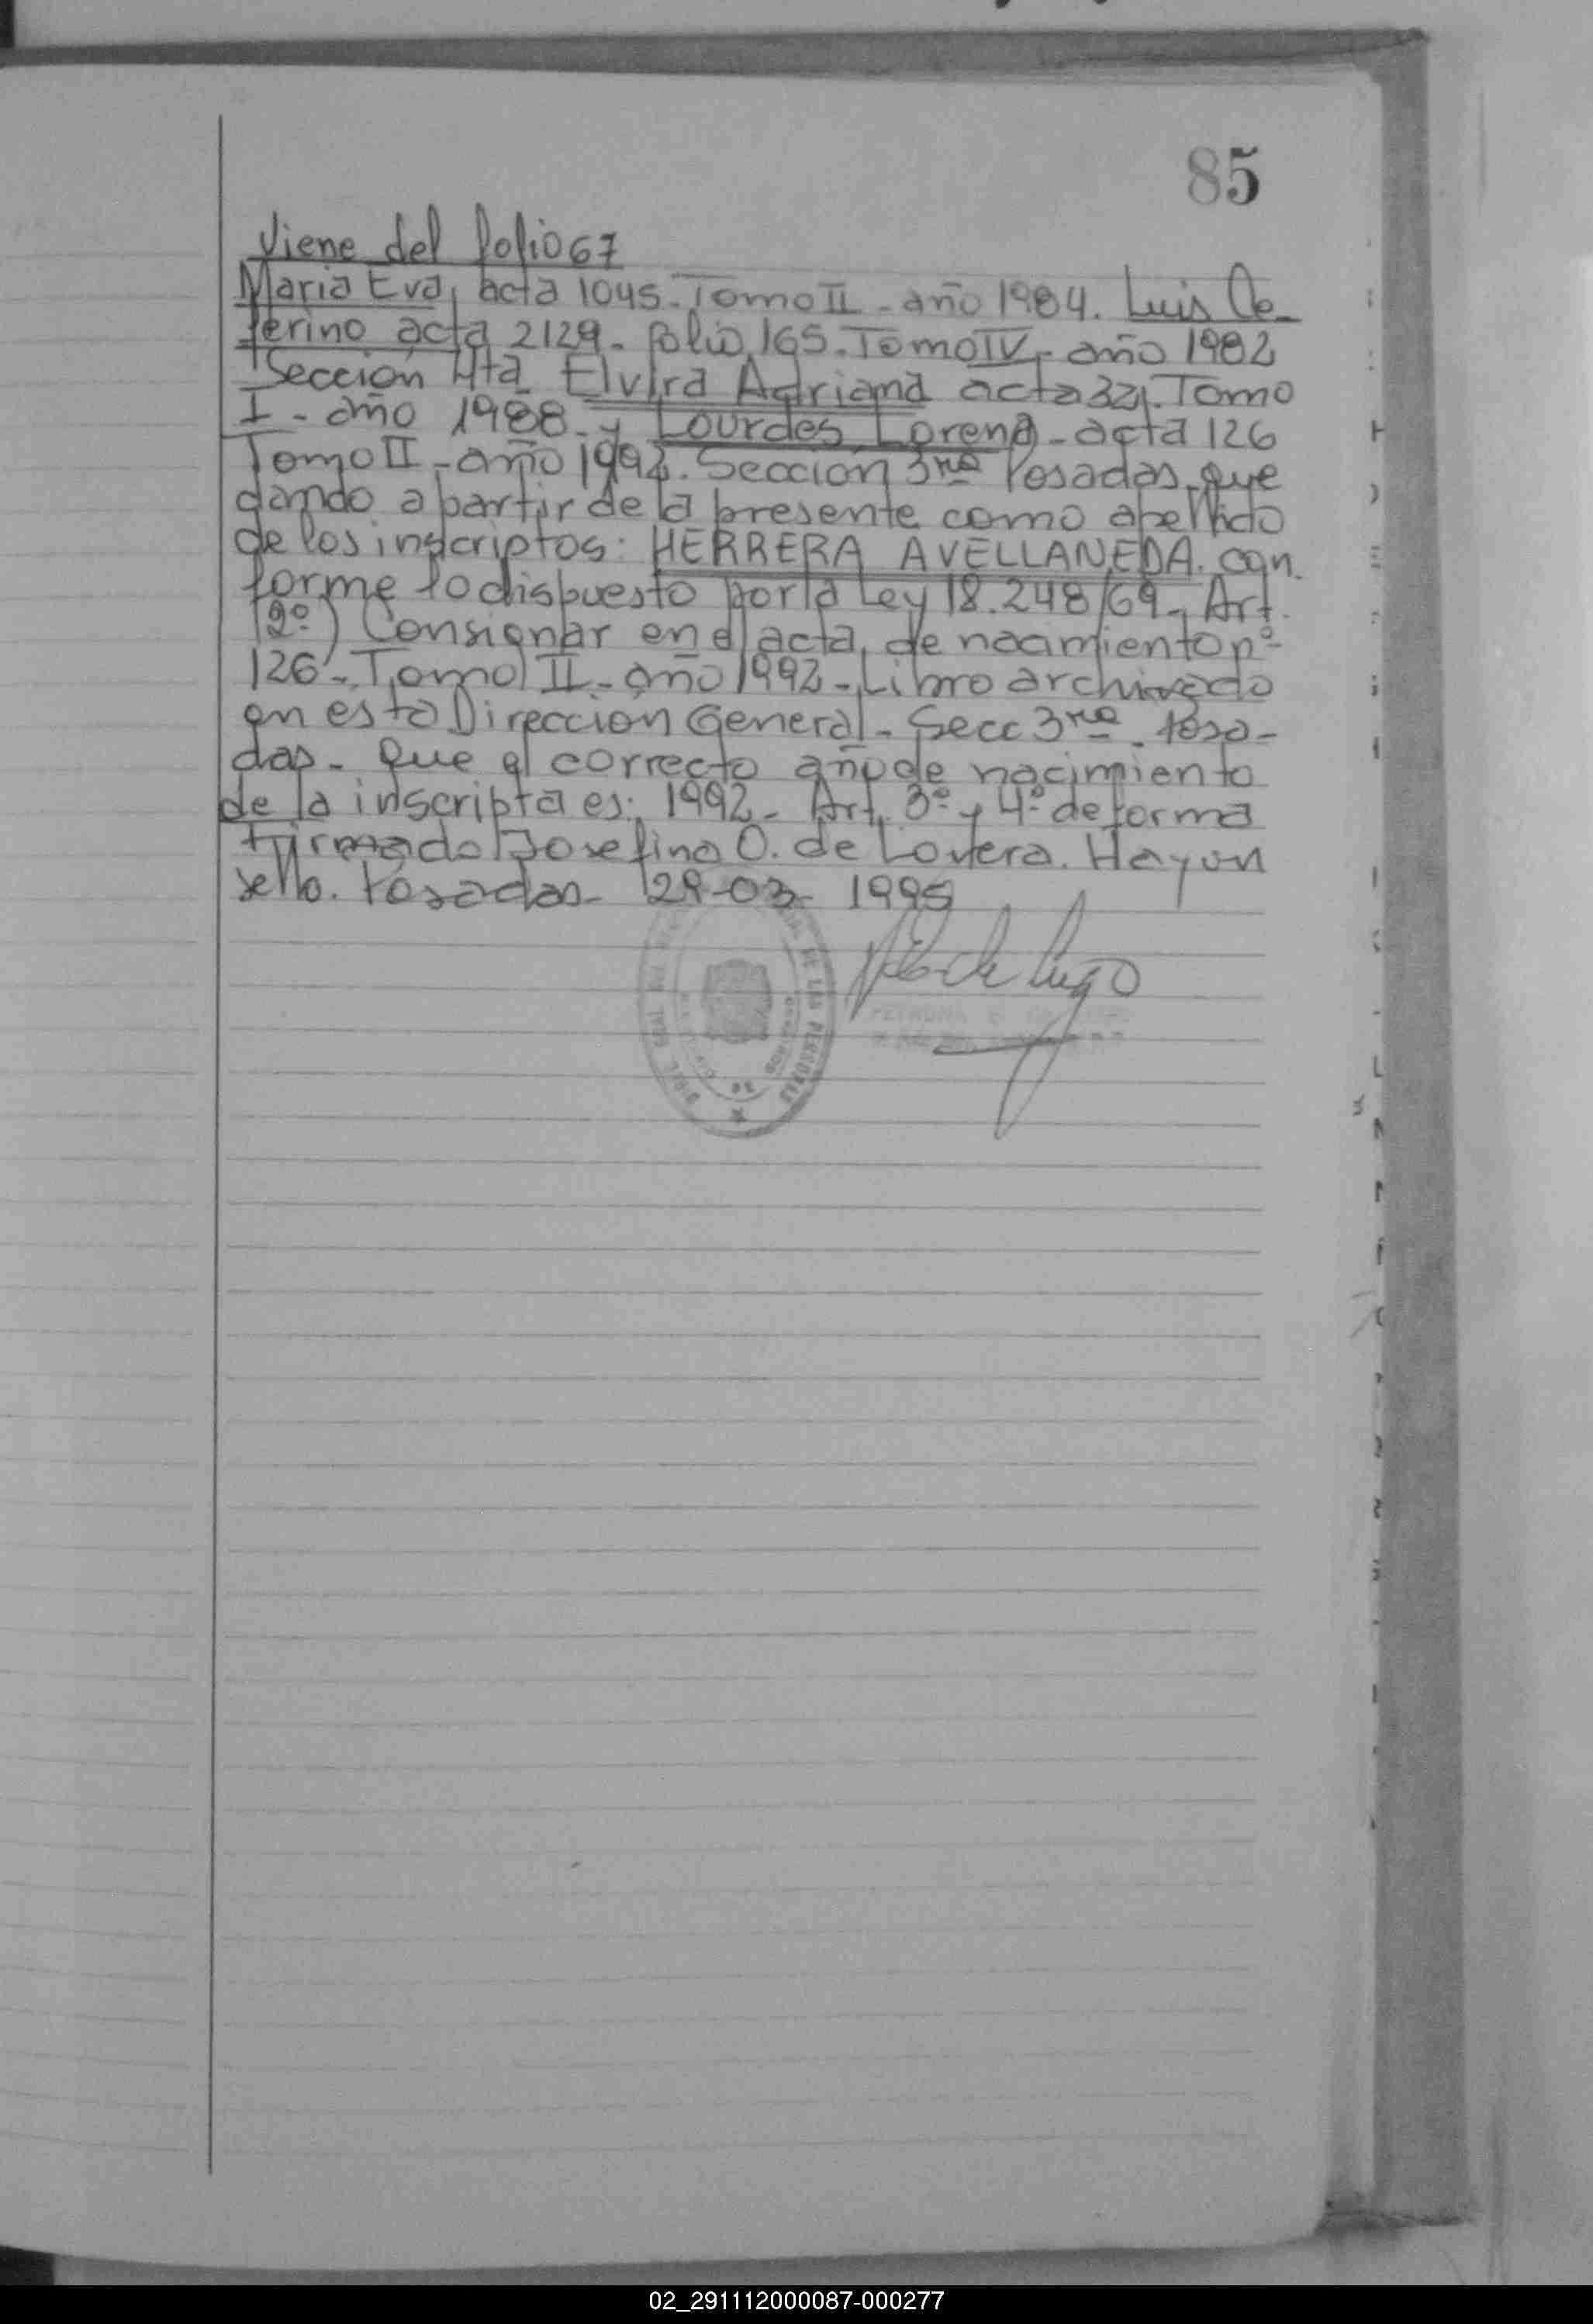 85
Viene del folio 67
Maria Eva, acta 1045. Tomo II - año 1984. Luis Ce-
ferino acta 2129 - folio 165. Tomo IV - año 1982
Sección 4ta Elvira Adriana acta 321. Tomo
I - año 1988 - y Lourdes Lorena - acta 126
Tomo II - año 1992. Sección 3ra Posadas, que
dando a partir de la presente como apellido
de los inscriptos: HERRERA AVELLANEDA. con.
forme lo dispuesto por la Ley 18.248/69 - Art.
2º) Consignar en el acta de nacimiento nº
126 - Tomo II - año 1992 - Libro archivado
en esta Dirección General - Secc 3ra. Posa-
das - que el correcto año de nacimiento
de la inscripta es: 1992 - Art. 3º y 4º de forma
Firmado Josefina O. de Lovera. Hay un
sello. Posadas - 29-03- 1995
DE LAS PERSONAS
02_291112000087-000277